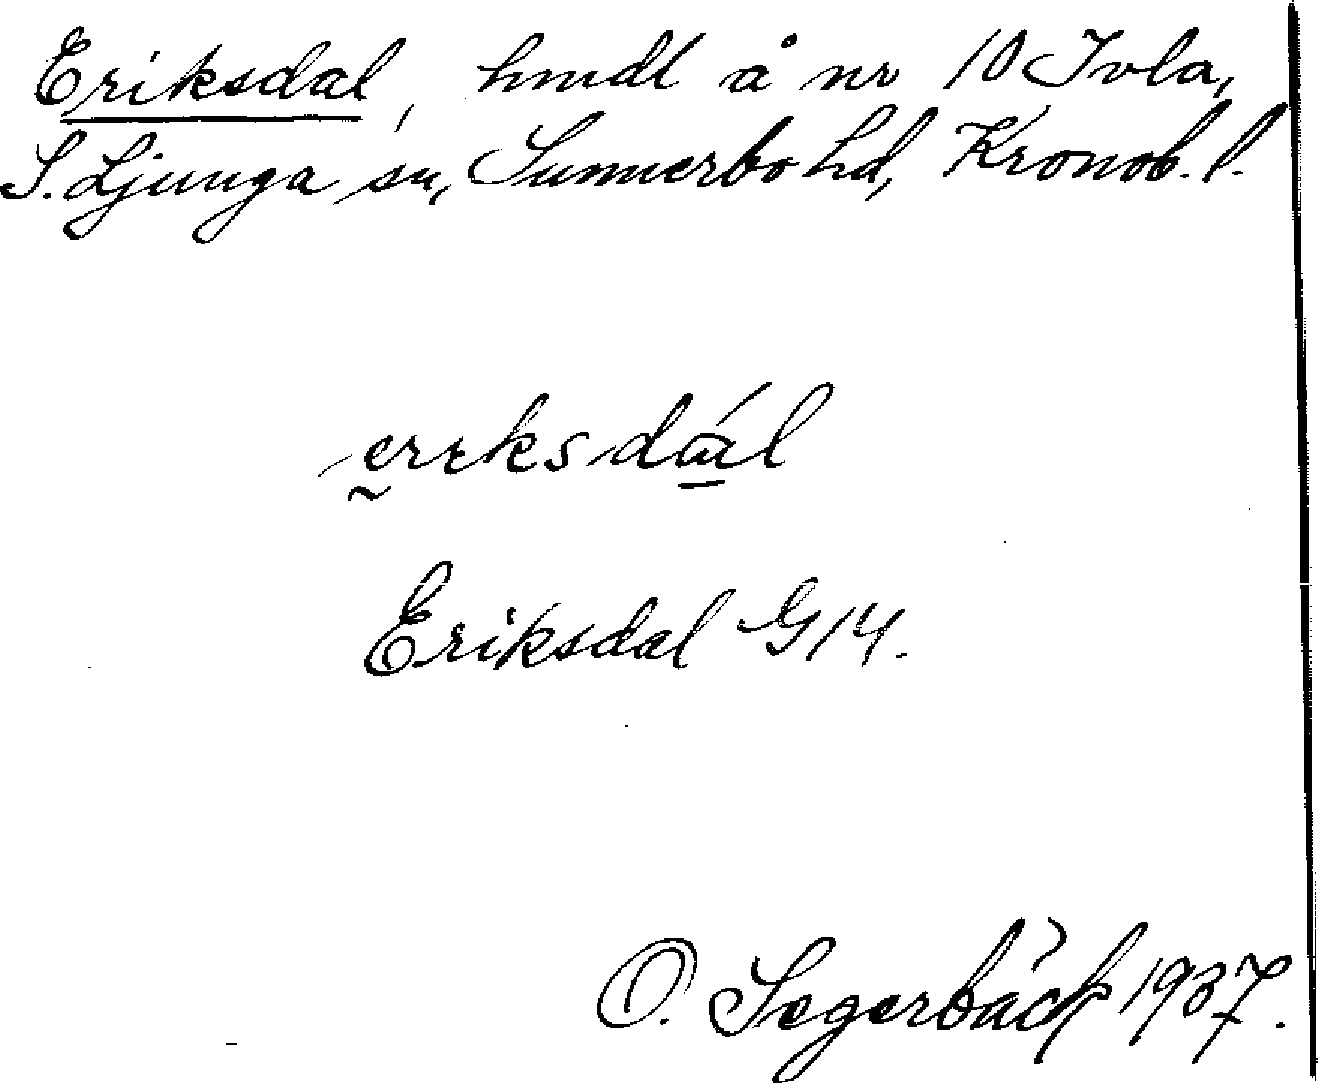 Eriksdal, hmdl å nr 10 Ivla,
S. Ljunga sn, Sunnerbo hd, Kronob. l.
ereksdál
Eriksdal G14.
O. Segerbäck 1937.